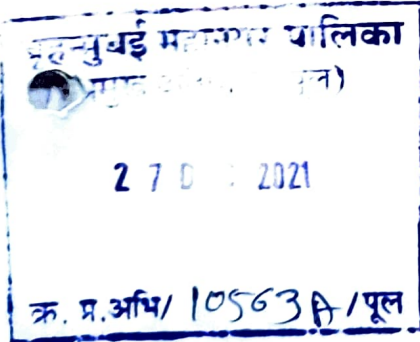 बृहन्मुंबई महानगर पालिका
27 DEC 2021
क्र. प्र.अभि/ 10563 A /पूल